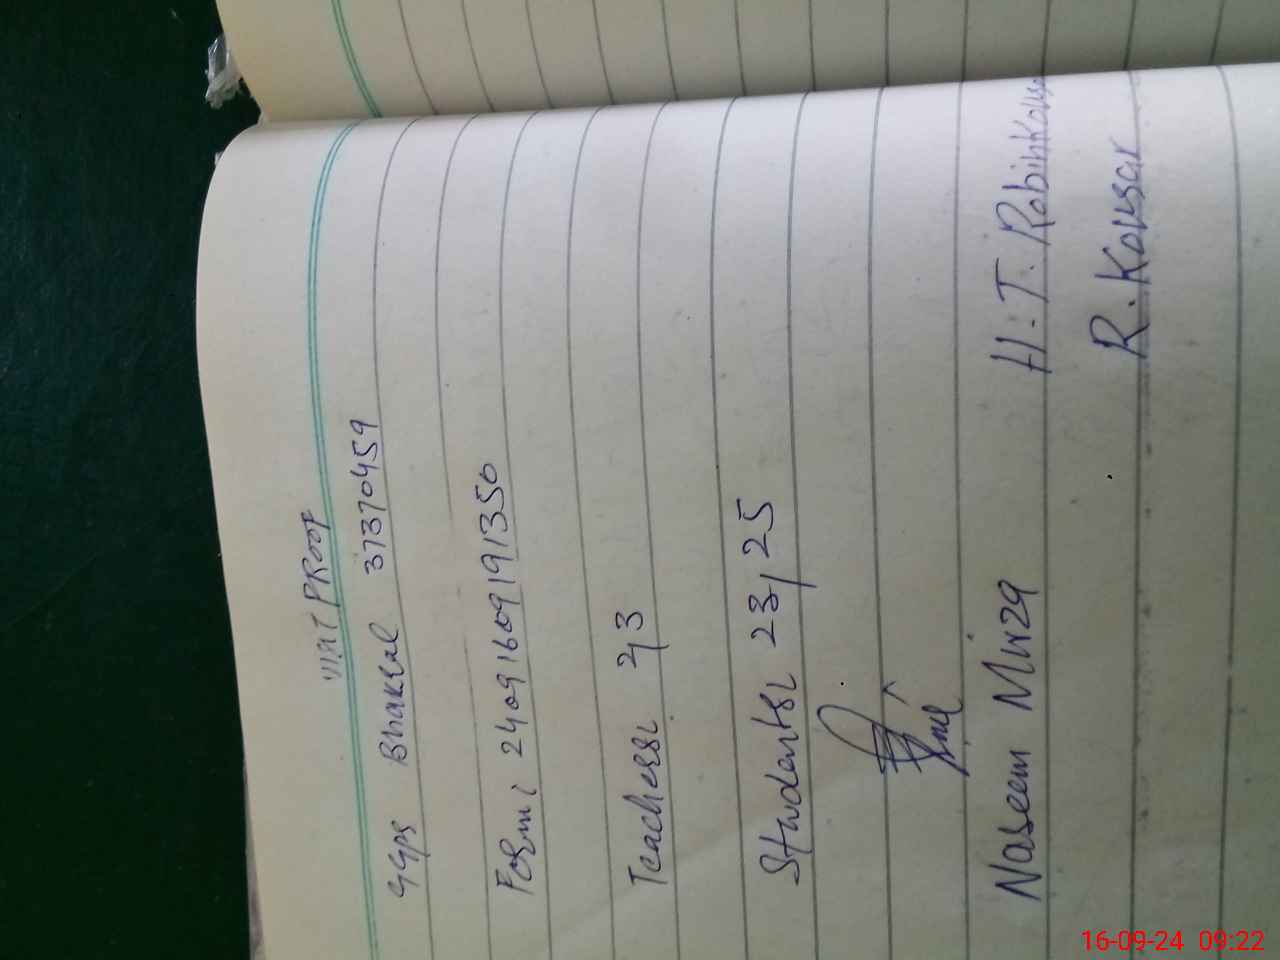 VISIT PROOF
GGPS Bhaksal 37370459
Form: 24091609191350
Teachers: 2/3
Students: 23/25
Naseem Mirza
H.T. Robina Kousar
R. Kousar
16-09-24 09:22